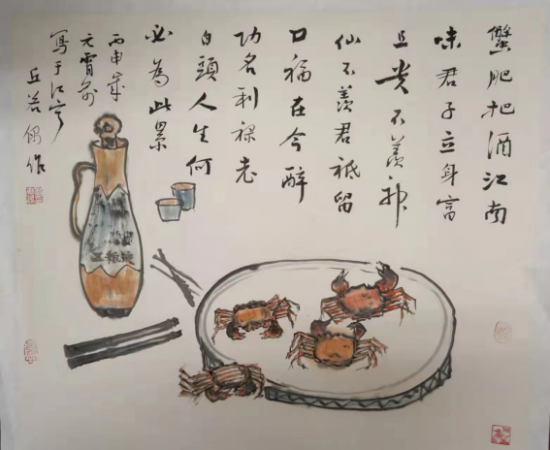 蟹肥把酒江南
味君子立身富
且贵不羡神
仙不羡君祗留
口福在今醉
功名利禄老
白頭人生何
必為此累
丙申歲
元宵前
寫于江寧
丘若作
五粮液